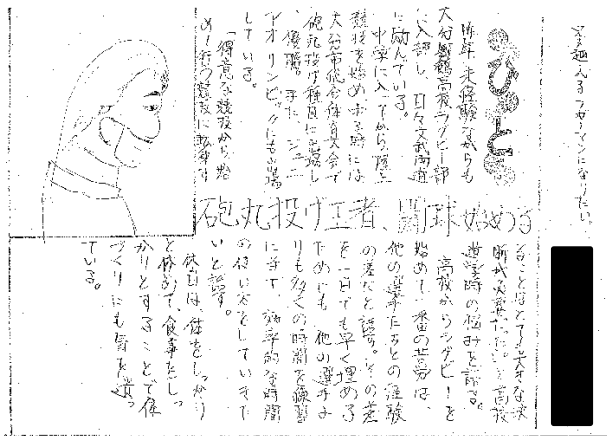 を越えるフッカーマンになりたい。
ひと
昨年、未経験ながらも
大分舞鶴高校ラグビー部
に入部し、日々文武両道
に励んでいる。
中学に入ってから、陸上
競技を始め
大分市総合体育大会で
砲丸投げ種目に出場し
優勝。また、ジュニ
アオリンピックにも出場
している。
「得意な競技から、始
め、行う競技に転向す
砲丸投げ王者、闘球始める
ることはとても大きな決
断だった。」と高校
進学時の悩みを語る。
高校からラグビーを
始めて、一番の苦労は、
他の選手たちとの経験
の差だと話す。その差
を一日でも早く埋める
ためにも、他の選手よ
りも多くの時間を練習
に当て、効率的な時間
の使い方をしていきた
いと話す。
休日は体をしっかり
と休めて、食事をしっ
かりとすることで体
づくりにも気を遣っ
ている。